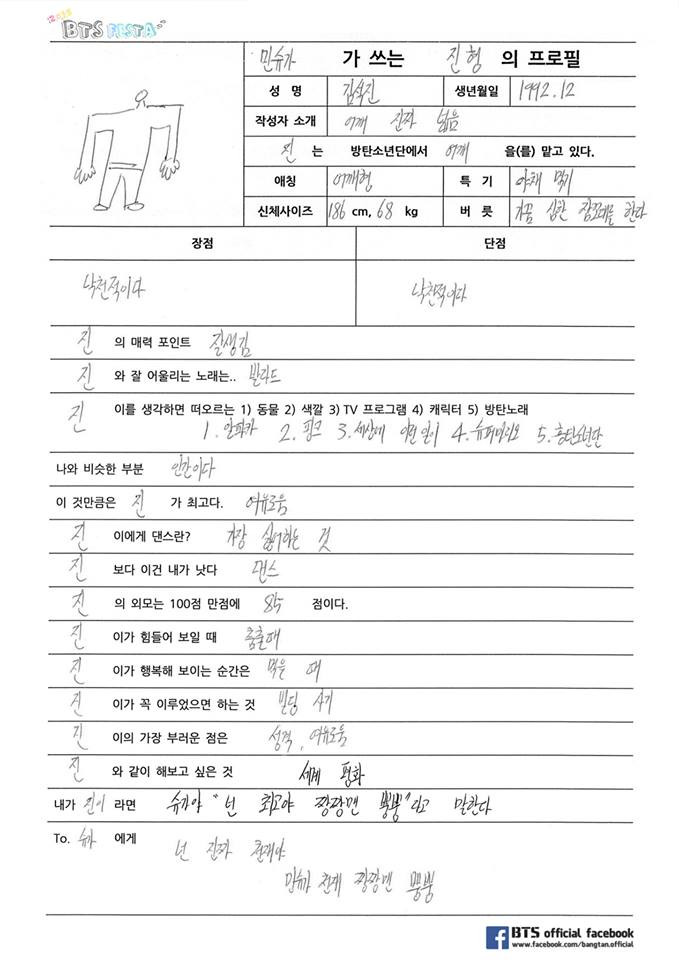 2015
BTS FESTA
민슈가 가 쓰는 진형 의 프로필
성 명 김석진 생년월일 1992.12
작성자 소개 어깨 진짜 넓음
진 는 방탄소년단에서 어깨 을(를) 맡고 있다.
애칭 어깨형 특 기 야채 먹기
신체사이즈 186 cm, 68 kg 버 릇 가끔 심한 잠꼬대를 한다
장점 단점
낙천적이다 낙천적이다
진 의 매력 포인트 잘생김
진 와 잘 어울리는 노래는.. 발라드
진 이를 생각하면 떠오르는 1) 동물 2) 색깔 3) TV 프로그램 4) 캐릭터 5) 방탄노래
1. 알파카 2. 핑크 3. 세상에 이런 일이 4. 슈퍼마리오 5. 흥탄소년단
나와 비슷한 부분 인간이다
이 것만큼은 진 가 최고다. 여유로움
진 이에게 댄스란? 가장 싫어하는 것
진 보다 이건 내가 낫다 댄스
진 의 외모는 100점 만점에 85 점이다.
진 이가 힘들어 보일 때 춤출때
진 이가 행복해 보이는 순간은 먹을 때
진 이가 꼭 이루었으면 하는 것 빌딩 사기
진 이의 가장 부러운 점은 성격, 여유로움
진 와 같이 해보고 싶은 것 세계 평화
내가 진이 라면 슈가야 "넌 최고야 짱짱맨 뿡뿡"라고 말한다
To. 슈가 에게 넌 진짜 천재야
민슈가 천재 짱짱맨 뿡뿡
BTS official facebook
www.facebook.com/bangtan.official